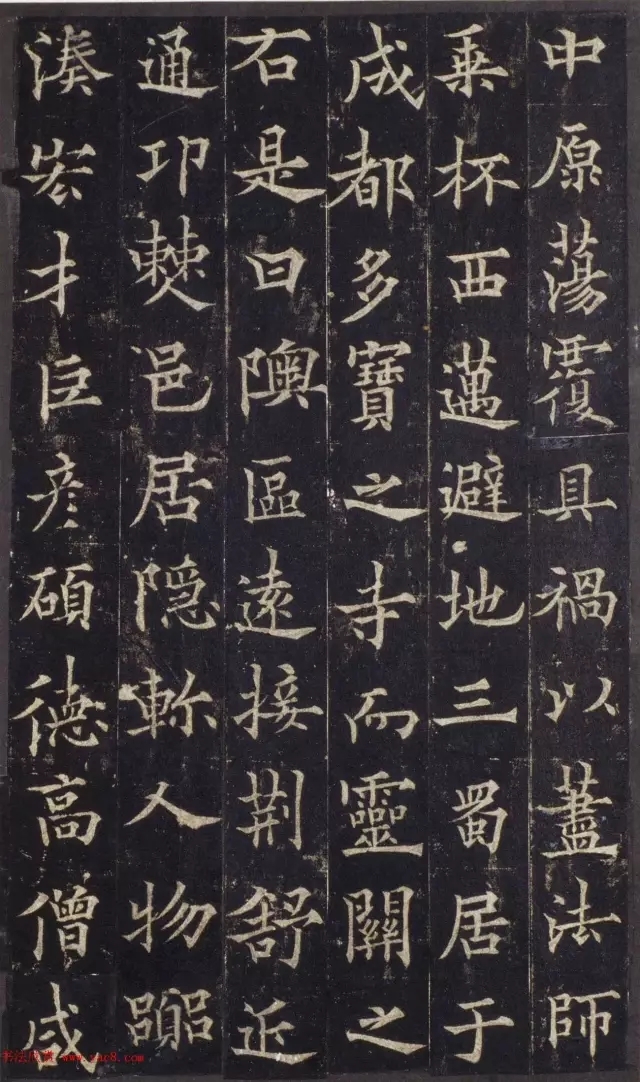 中原蕩覆具禍以藎法師
乗杯西邁避地三蜀居于
成都多寶之寺而靈關之
右是曰隩區遠接荊舒近
通邛僰邑居隱軫人物囂
湊宏才巨彥碩德高僧咸
书法欣赏 www.yac8.com